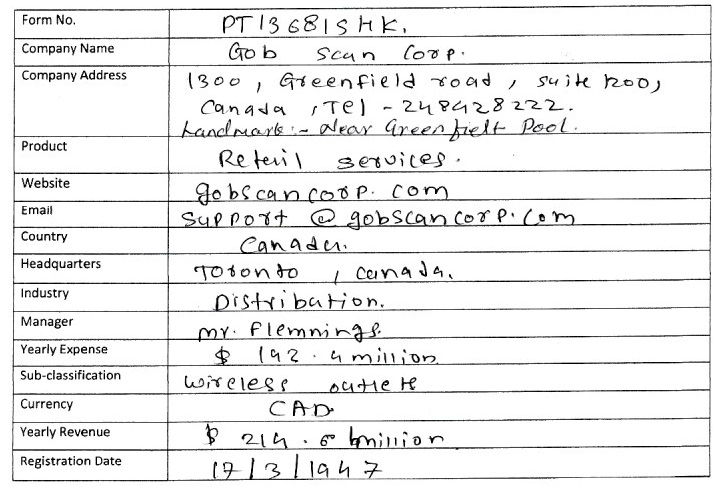 Form No. PT13681SHK.
Company Name Gob Scan Corp.
Company Address 1300, Greenfield road, suite 1200,
Canada, Tel - 248428222.
Landmark:- Near Greenfielt Pool.
Product Reteril services.
Website gobscancorp.com
Email Support @ gobscancorp.com
Country Canada.
Headquarters Toronto, Canada.
Industry Distribution.
Manager mr. Flemnings.
Yearly Expense $ 192.4 million
Sub-classification wireless
Currency CAD
Yearly Revenue $ 214. million
Registration Date 17/3/1947